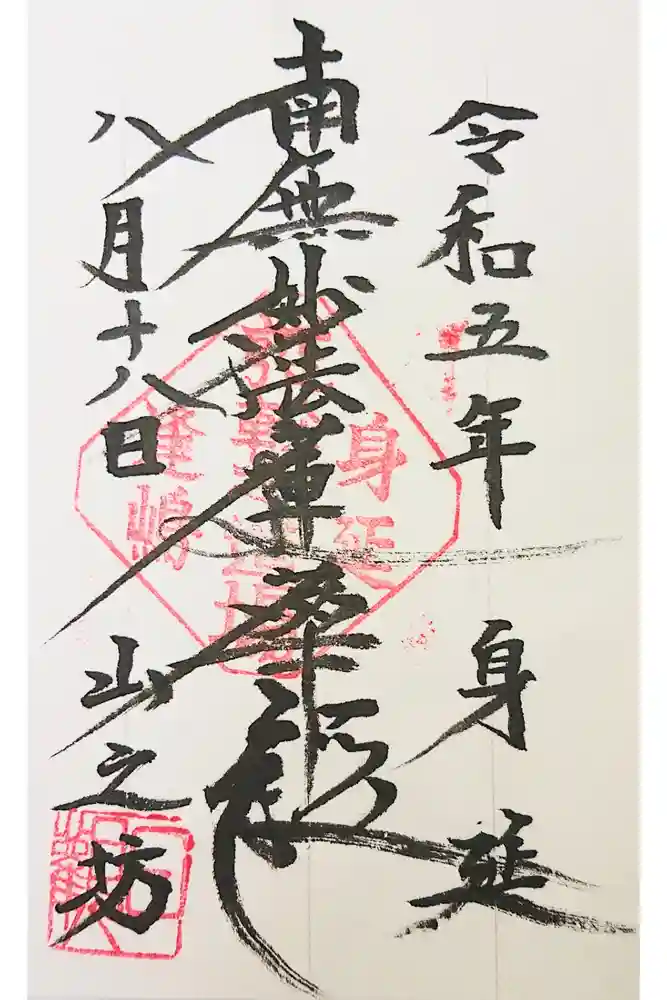 令和五年 身延
南無妙法蓮華経
八月十八日 山之坊
身延
蓬嶋